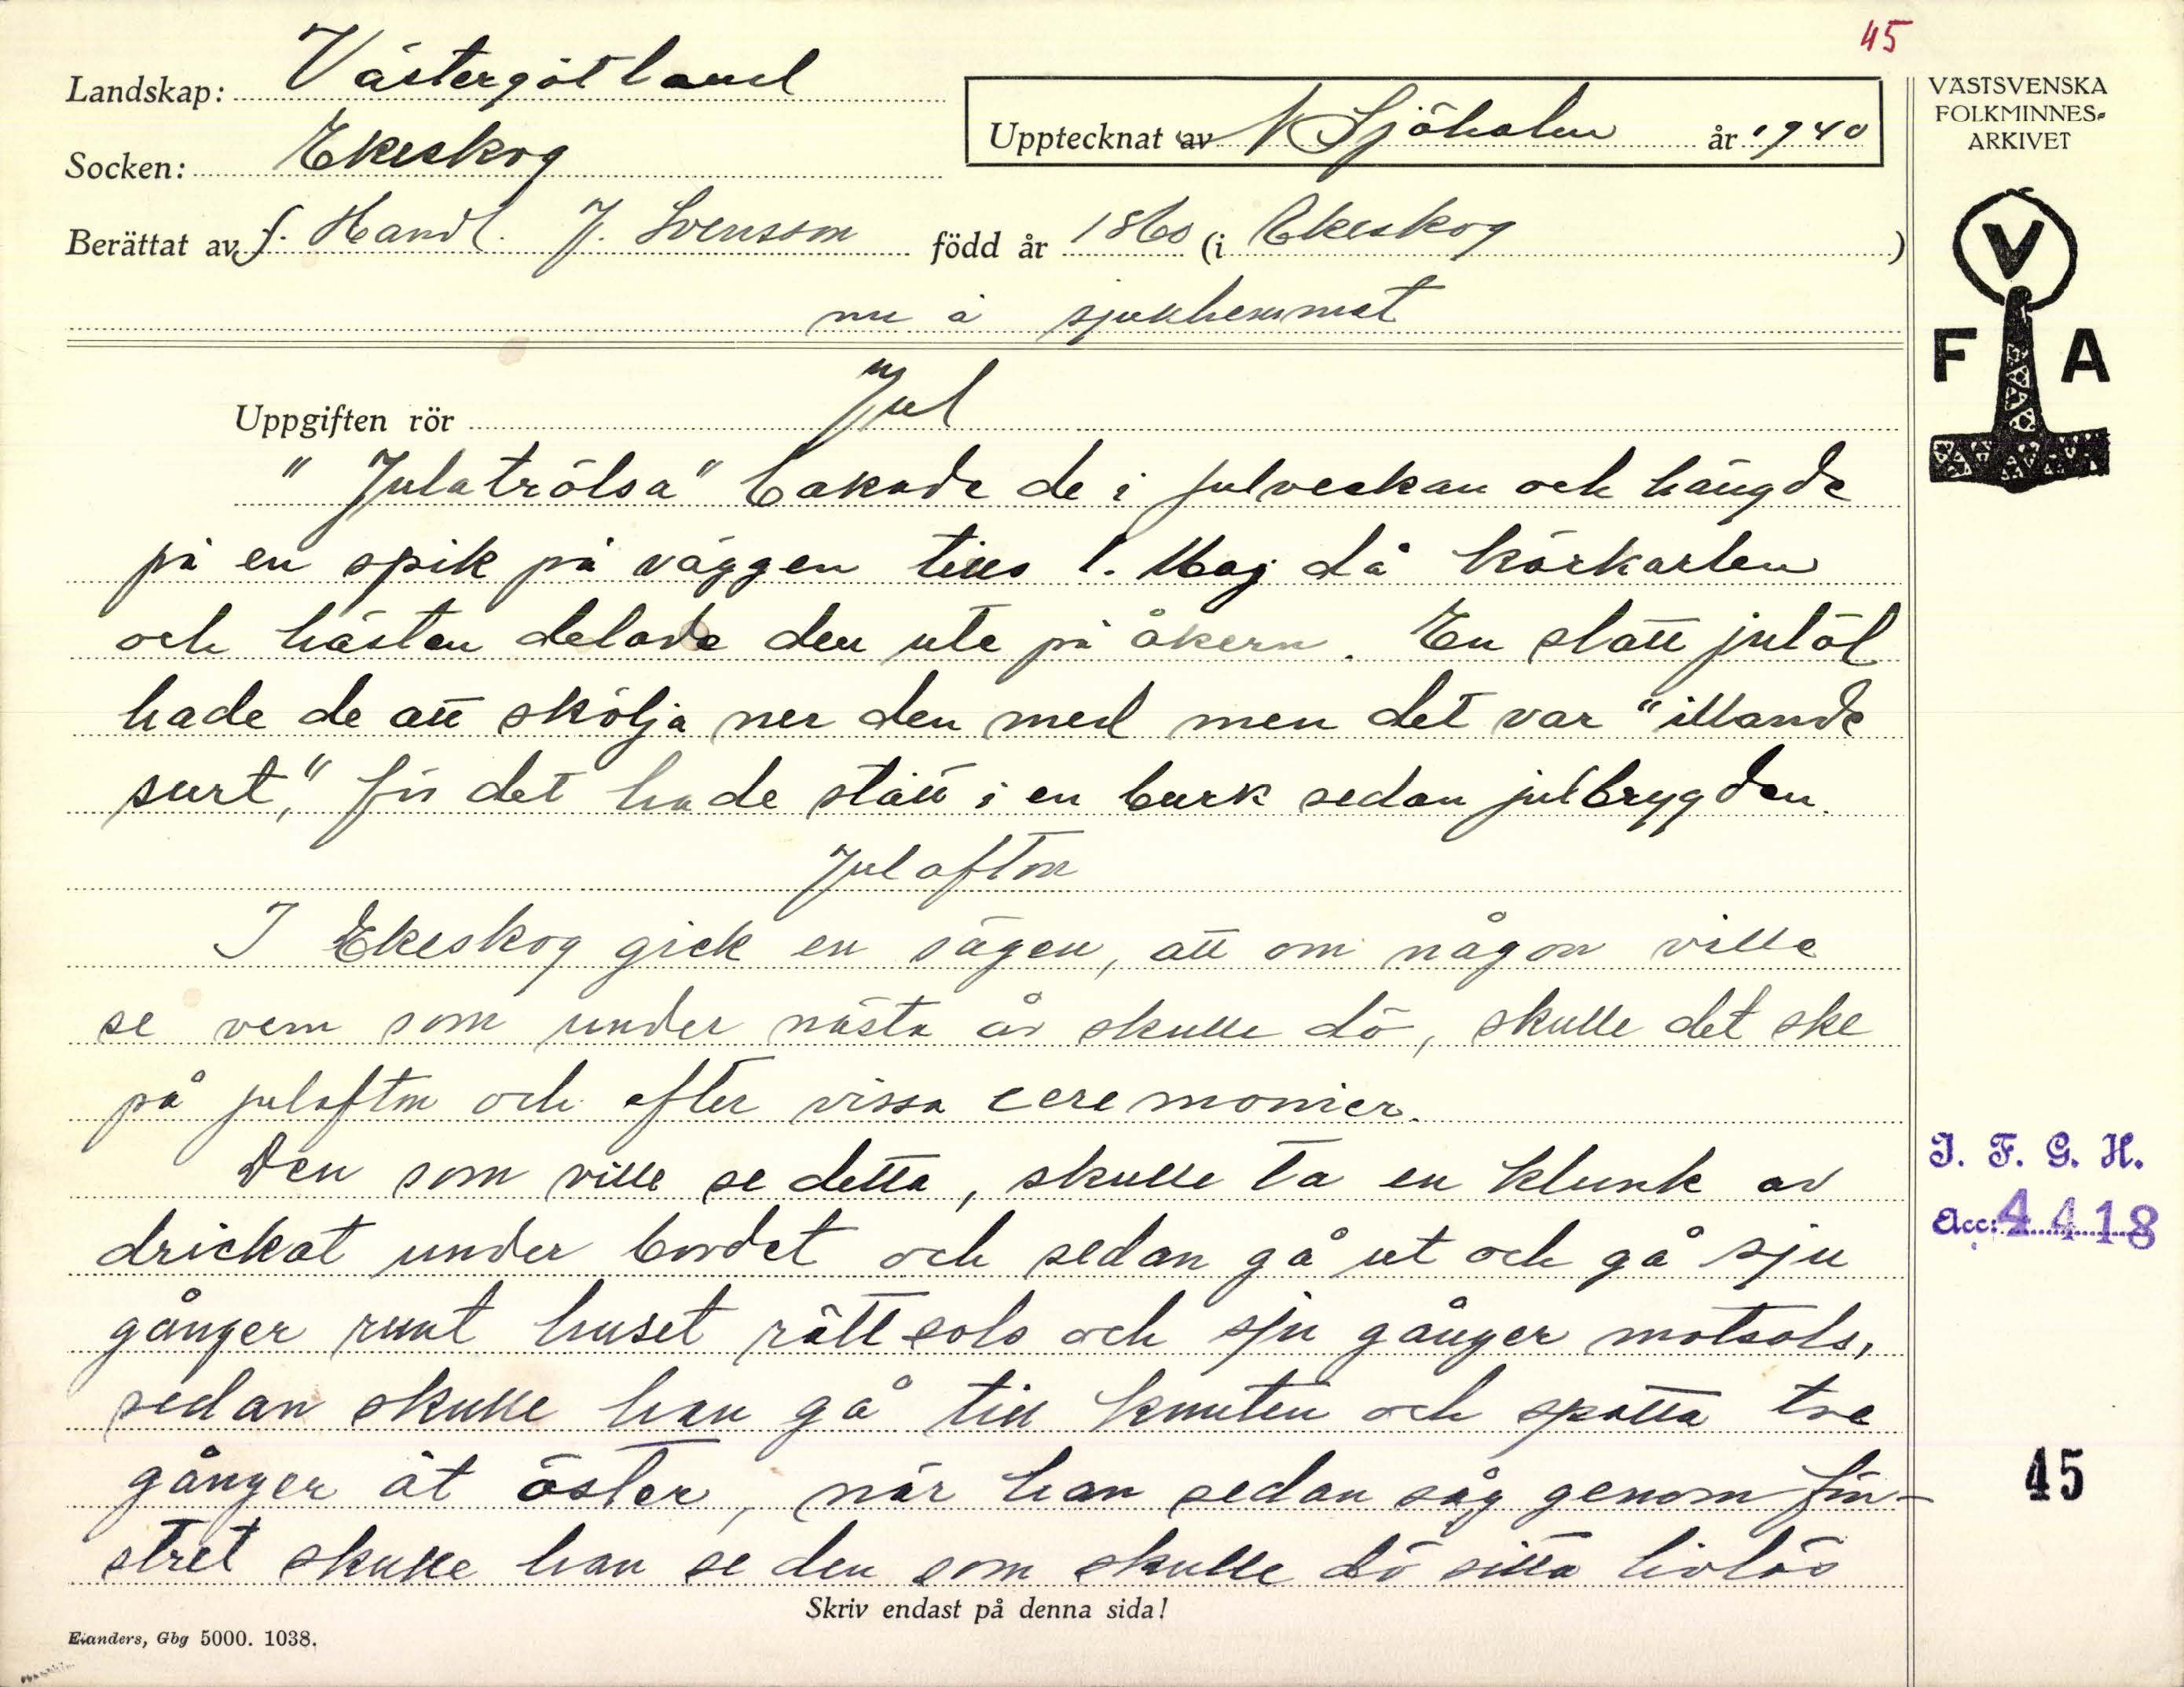 45
Landskap: Västergötland
Socken: Ekeskog
Upptecknat av N Sjöholm år 1940
Berättat av f. Handl. J. Svensson född år 1860 (i Ekeskog )
nu å sjukhemmet
Uppgiften rör Jul
"Julatrölsa" bakade de i julveckan och hängde
på en spik på väggen tills 1. Maj då körkarlen
och hästen delade den ute på åkern. En slatt julöl
hade de att skölja ner den med men det var "illande
surt", för det hade stått i en burk sedan julbrygden.
Julafton
I Ekeskog gick en sägen, att om någon ville
se vem som under nästa år skulle dö, skulle det ske
på julafton och efter vissa ceremonier.
Den som ville se detta, skulle ta en klunk av
drickat under bordet och sedan gå ut och gå sju
gånger runt huset rättsols och sju gånger motsols,
sedan skulle han gå till knuten och spotta tre
gånger åt öster, när han sedan såg genom fön-
stret skulle han se den som skulle dö sitta livlös
Skriv endast på denna sida!
Elanders, Gbg 5000. 1038.
VÄSTSVENSKA
FOLKMINNES-
ARKIVET
V
F A
I. F. G. H.
Acc: 4418
45